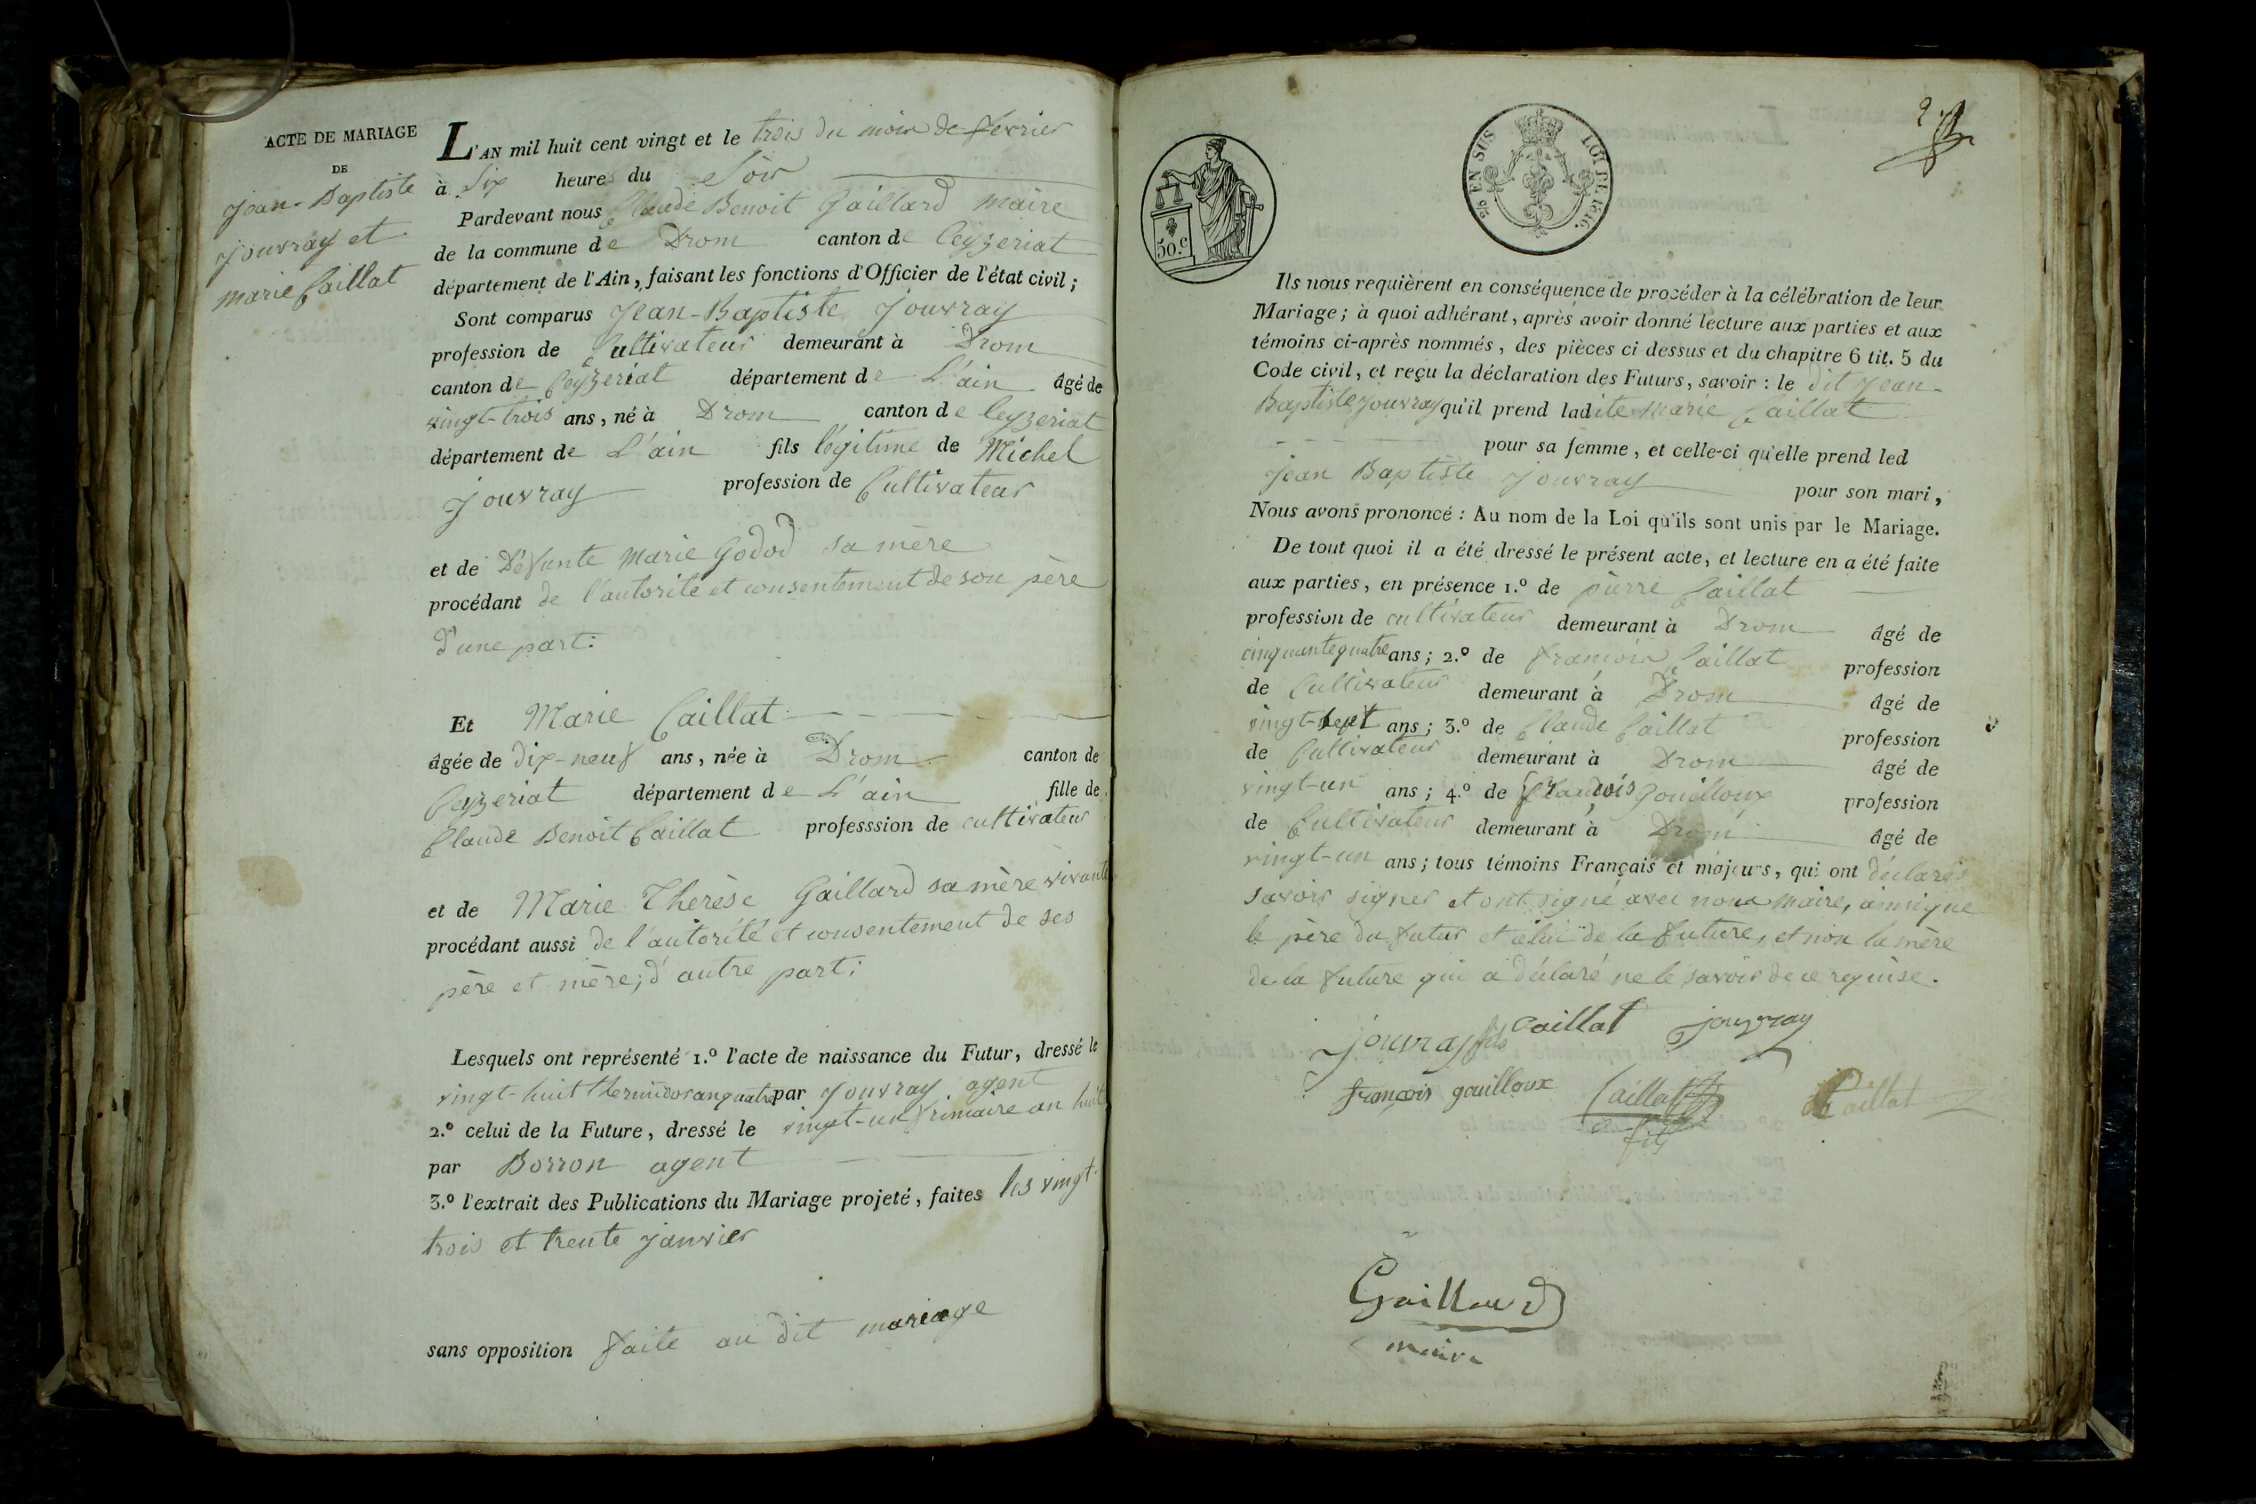 ACTE DE MARIAGE
DE
Jean-Baptiste
Jouvray et
Marie Caillat
L'AN mil huit cent vingt et le trois du mois de février
à Six heures du Soir
Pardevant nous Claude Benoit Gaillard Maire
de la commune de Drom canton de Ceyzeriat
département de l'Ain, faisant les fonctions d'Officier de l'état civil;
Sont comparus Jean-Baptiste Jouvray
profession de Cultivateur demeurant à Drom
canton de Ceyzeriat département de L'ain âgé de
vingt-trois ans, né à Drom canton de Ceyzeriat
département de L'ain fils légitime de Michel
Jouvray profession de Cultivateur
et de Défunte Marie Godod sa mère
procédant de l'autorité et consentement de son père
d'une part:
Et Marie Caillat
âgée de dix-neuf ans, née à Drom canton de
Ceyzeriat département de L'ain fille de
Claude Benoit Caillat professsion de cultivateur
et de Marie Therèse Gaillard sa mère vivante
procédant aussi de l'autorité et consentement de ses
père et mère; d'autre part;
Lesquels ont représenté 1.º l'acte de naissance du Futur, dressé le
vingt-huit thermidor an quatre par Jouvray agent
2.º celui de la Future, dressé le vingt-un frimaire an huit
par Borron agent
3.º l'extrait des Publications du Mariage projeté, faites les vingt-
trois et trente janvier
sans opposition faite au dit mariage
50.c
EN SUS LOI DE 1816.
Ils nous requièrent en conséquence de procéder à la célébration de leur
Mariage; à quoi adhérant, après avoir donné lecture aux parties et aux
témoins ci-après nommés, des pièces ci dessus et du chapitre 6 tit. 5 du
Code civil, et reçu la déclaration des Futurs, savoir: le dit Jean-
Baptiste Jouvray qu'il prend ladite Marie Caillat
pour sa femme, et celle-ci qu'elle prend led
Jean Baptiste Jouvray pour son mari,
Nous avons prononcé: Au nom de la Loi qu'ils sont unis par le Mariage.
De tout quoi il a été dressé le présent acte, et lecture en a été faite
aux parties, en présence 1.º de pierre Caillat
profession de cultivateur demeurant à Drom âgé de
cinquante quatre ans; 2.º de françois Caillat profession
de Cultivateur demeurant à Drom âgé de
vingt-sept ans; 3.º de Claude Caillat profession
de Cultivateur demeurant à Drom âgé de
vingt-un ans; 4.º de françois Gouilloux profession
de Cultivateur demeurant à Drom âgé de
vingt-un ans; tous témoins Français et majeurs, qui ont déclarés
savoir signer et ont signé avec nous Maire, ainsi que
le père du futur et celui de la future, et non la mère
de la future qui a déclaré ne le savoir de ce requise.
Jouvray fils Caillat Jouvray
françois gouilloux Caillat fils Caillat
Gaillard
maire